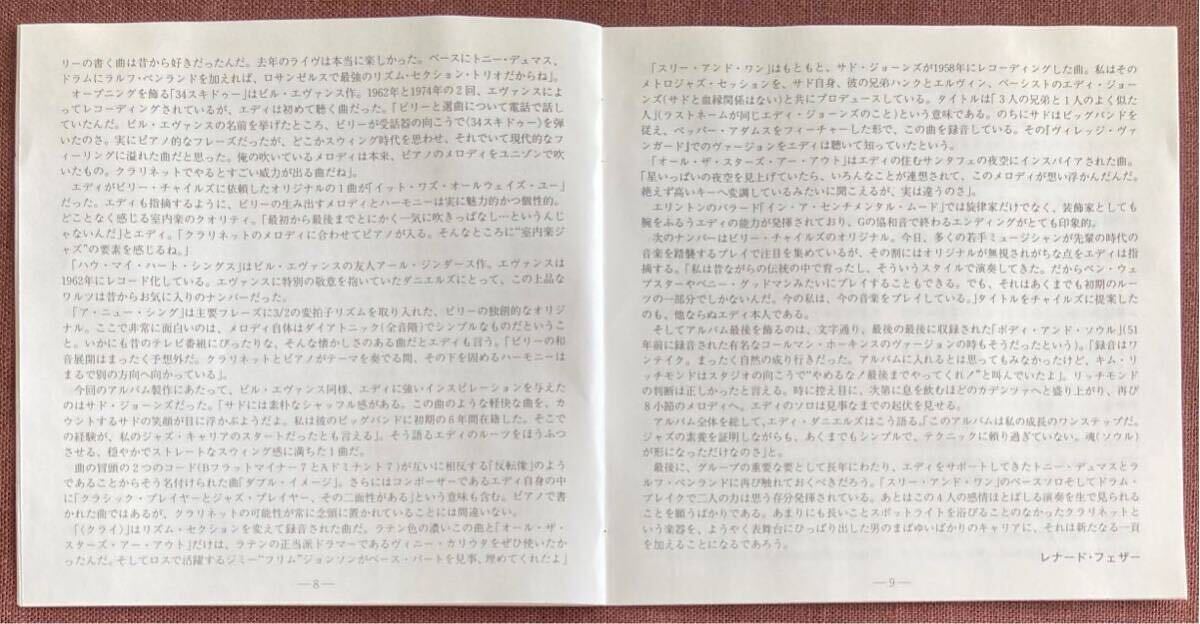 リーの書く曲は昔から好きだったんだ。去年のライヴは本当に楽しかった。ベースにトニー・デュマス、
ドラムにラルフ・ペンランドを加えれば、ロサンゼルスで最強のリズム・セクション・トリオだからね」。
オープニングを飾る「34スキドゥー」はビル・エヴァンス作。1962年と1974年の2回、エヴァンスによ
ってレコーディングされているが、エディは初めて聴く曲だった。「ビリーと選曲について電話で話し
ていたんだ。ビル・エヴァンスの名前を挙げたところ、ビリーが受話器の向こうで〈34スキドゥー〉を弾
いたのさ。実にピアノ的なフレーズだったが、どこかスウィング時代を思わせ、それでいて現代的なフ
ィーリングに溢れた曲だと思った。俺の吹いているメロディは本来、ピアノのメロディをユニゾンで吹
いたもの。クラリネットでやるとすごい威力が出る曲だね」。
エディがビリー・チャイルズに依頼したオリジナルの1曲が「イット・ワズ・オールウェイズ・ユー」
だった。エディも指摘するように、ビリーの生み出すメロディとハーモニーは実に魅力的かつ個性的。
どことなく感じる室内楽のクオリティ。「最初から最後までとにかく一気に吹きっぱなし…というんじ
ゃないんだ」とエディ。「クラリネットのメロディに合わせてピアノが入る。そんなところに“室内楽ジ
ャズ”の要素を感じるね。」
「ハウ・マイ・ハート・シングス」はビル・エヴァンスの友人アール・ジンダース作。エヴァンスは
1962年にレコード化している。エヴァンスに特別の敬意を抱いていたダニエルズにとって、この上品な
ワルツは昔からお気に入りのナンバーだった。
「ア・ニュー・シング」は主要フレーズに3/2の変拍子リズムを取り入れた、ビリーの独創的なオリジ
ナル。ここで非常に面白いのは、メロディ自体はダイアトニック(全音階)でシンプルなものだというこ
と。いかにも昔のテレビ番組にぴったりな、そんな懐かしさのある曲だとエディも言う。「ビリーの和
音展開はまったく予想外だ。クラリネットとピアノがテーマを奏でる間、その下を固めるハーモニーは
まるで別の方向へ向かっている」。
今回のアルバム製作にあたって、ビル・エヴァンス同様、エディに強いインスピレーションを与えた
のはサド・ジョーンズだった。「サドには素朴なシャッフル感がある。この曲のような軽快な曲を、カ
ウントするサドの笑顔が目に浮かぶようだよ。私は彼のビッグバンドに初期の6年間在籍した。そこで
の経験が、私のジャズ・キャリアのスタートだったとも言える」。そう語るエディのルーツをほうふつ
させる、穏やかでストレートなスウィング感に満ちた1曲だ。
曲の冒頭の2つのコード(Bフラットマイナー7とAドミナント7)が互いに相反する「反転像」のよう
であることからそう名付けられた曲「ダブル・イメージ」。さらにはコンポーザーであるエディ自身の中
に「クラシック・プレイヤーとジャズ・プレイヤー、その二面性がある」という意味も含む。ピアノで書
かれた曲ではあるが、クラリネットの可能性が常に念頭に置かれていることには間違いない。
「〈クライ〉はリズム・セクションを変えて録音された曲だ。ラテン色の濃いこの曲と「オール・ザ・
スターズ・アー・アウト」だけは、ラテンの正当派ドラマーであるヴィニー・カリウタをぜひ使いたか
ったんだ。そしてロスで活躍するジミー“フリム”ジョンソンがベース・パートを見事、埋めてくれたよ」
—8—
「スリー・アンド・ワン」はもともと、サド・ジョーンズが1958年にレコーディングした曲。私はその
メトロジャズ・セッションを、サド自身、彼の兄弟ハンクとエルヴィン、ベーシストのエディ・ジョー
ンズ(サドと血縁関係はない)と共にプロデュースしている。タイトルは「3人の兄弟と1人のよく似た
人」(ラストネームが同じエディ・ジョーンズのこと)という意味である。のちにサドはビッグバンドを
従え、ペッパー・アダムスをフィーチャーした形で、この曲を録音している。その『ヴィレッジ・ヴァ
ンガード』でのヴァージョンをエディは聴いて知っていたという。
「オール・ザ・スターズ・アー・アウト」はエディの住むサンタフェの夜空にインスパイアされた曲。
「星いっぱいの夜空を見上げていたら、いろんなことが連想されて、このメロディが想い浮かんだんだ。
絶えず高いキーへ変調しているみたいに聞こえるが、実は違うのさ」。
エリントンのバラード「イン・ア・センチメンタル・ムード」では旋律家だけでなく、装飾家としても
腕をふるうエディの能力が発揮されており、Gの協和音で終わるエンディングがとても印象的。
次のナンバーはビリー・チャイルズのオリジナル。今日、多くの若手ミュージシャンが先輩の時代の
音楽を踏襲するプレイで注目を集めているが、その割にはオリジナルが無視されがちな点をエディは指
摘する。「私は昔ながらの伝統の中で育ったし、そういうスタイルで演奏してきた。だからベン・ウェ
ブスターやベニー・グッドマンみたいにプレイすることもできる。でも、それはあくまでも初期のルー
ツの一部分でしかないんだ。今の私は、今の音楽をプレイしている。」タイトルをチャイルズに提案した
のも、他ならぬエディ本人である。
そしてアルバム最後を飾るのは、文字通り、最後の最後に収録された「ボディ・アンド・ソウル」(51
年前に録音された有名なコールマン・ホーキンスのヴァージョンの時もそうだったという)。「録音はワ
ンテイク。まったく自然の成り行きだった。アルバムに入れるとは思ってもみなかったけど、キム・リ
ッチモンドはスタジオの向こうで“やめるな!最後までやってくれ!”と叫んでいたよ」。リッチモンド
の判断は正しかったと言える。時に控え目に、次第に息を飲むほどのカデンツァへと盛り上がり、再び
8小節のメロディへ。エディのソロは見事なまでの起伏を見せる。
アルバム全体を総して、エディ・ダニエルズはこう語る。「このアルバムは私の成長のワンステップだ。
ジャズの素養を証明しながらも、あくまでもシンプルで、テクニックに頼り過ぎていない。魂(ソウル)
が形になっただけなのさ」と。
最後に、グループの重要な要として長年にわたり、エディをサポートしてきたトニー・デュマスとラ
ルフ・ペンランドに再び触れておくべきだろう。「スリー・アンド・ワン」のベースソロそしてドラム・
ブレイクで二人の力は思う存分発揮されている。あとはこの4人の感情ほとばしる演奏を生で見られる
ことを願うばかりである。あまりにも長いことスポットライトを浴びることのなかったクラリネットと
いう楽器を、ようやく表舞台にひっぱり出した男のまばゆいばかりのキャリアに、それは新たなる一頁
を加えることになるであろう。
レナード・フェザー
—9—